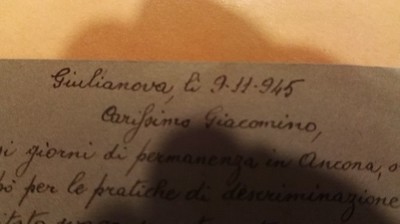 Giulianova, li 9-11-945
Carissimo Giacomino,
giorni di permanenza in Ancona,
per le pratiche di descriminazione